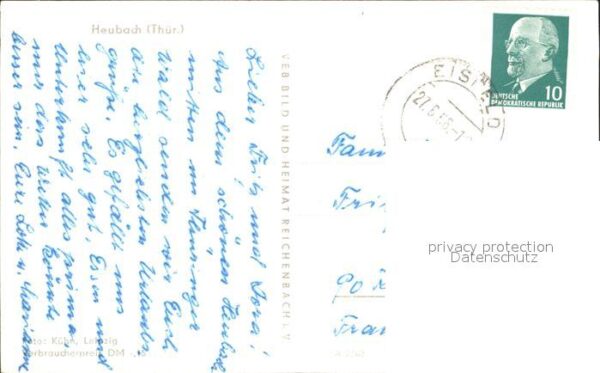 Heubach (Thür.)
Lieber Fritz und Dora!
Aus dem schönen Heubach
mitten im Thüringer
Wald senden wir Euch
die herzlichsten Urlaubs-
grüße. Es gefällt uns
hier sehr gut, Essen und
Unterkunft alles prima,
nur das Wetter könnte
besser sein. Eure Lotte u. Marianne
VEB BILD UND HEIMAT REICHENBACH I.V.
Foto: Kühn, Leipzig
Verbraucherpreis DM
EISFELD
27.6.66
10
DEUTSCHE
DEMOKRATISCHE REPUBLIK
Fam
Fri
90
Fran
privacy protection
Datenschutz